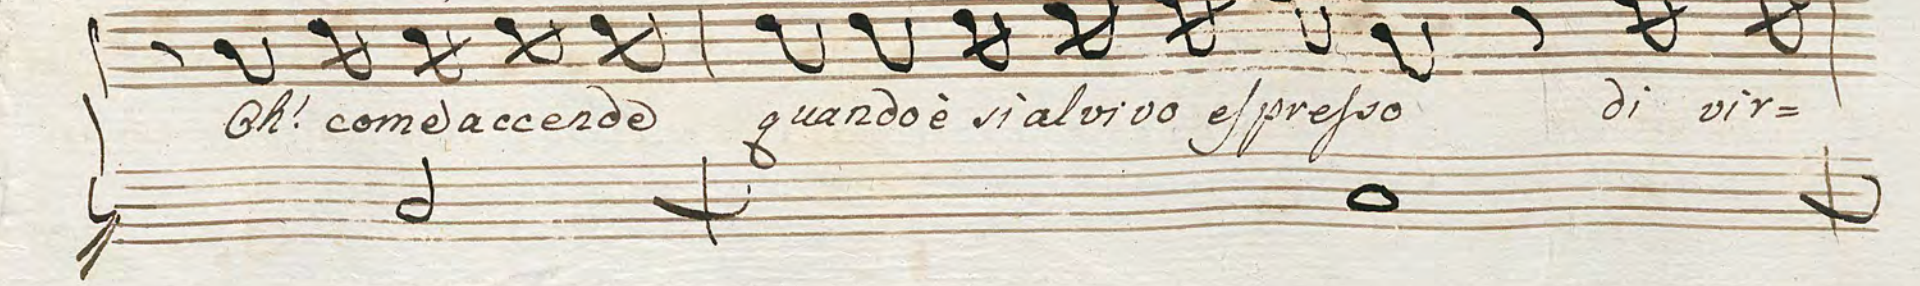 Oh! come accende quando è sì al vivo eſpreſso di vir=